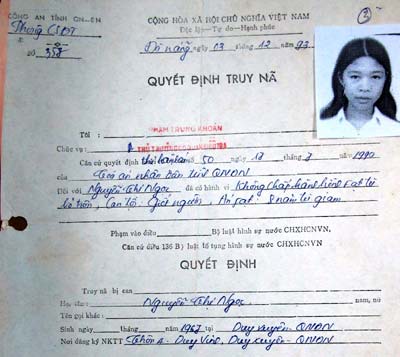 CÔNG AN TỈNH QN-ĐN
Phòng CSĐT
Số 358
CỘNG HÒA XÃ HỘI CHỦ NGHĨA VIỆT NAM
Độc lập — Tự do — Hạnh phúc
Đà nẵng ngày 03 tháng 12 năm 93
QUYẾT ĐỊNH TRUY NÃ
Tôi : PHẠM TRUNG KHOÁN
Chức vụ : THỦ TRƯỞNG
Căn cứ quyết định số 50 ngày 13 tháng 3 năm 1990
của Tòa án nhân dân tỉnh QNĐN
Đối với Nguyễn Thị Ngọc đã có hành vi Không chấp hành
bỏ trốn, Can tội: Giết người. Án phạt 8 năm tù giam
Phạm vào điều Bộ luật hình sự nước CHXHCNVN,
Căn cứ điều 136 B) luật tố tụng hình sự nước CHXHCNVN.
QUYẾT ĐỊNH
Truy nã bị can
Họ tên: Nguyễn Thị Ngọc nam, nữ
Tên gọi khác:
Sinh ngày tháng năm 1967 tại Duy xuyên - QNĐN
Nơi đăng ký NKTT Thôn 2 - Duy Vinh, Duy xuyên - QNĐN